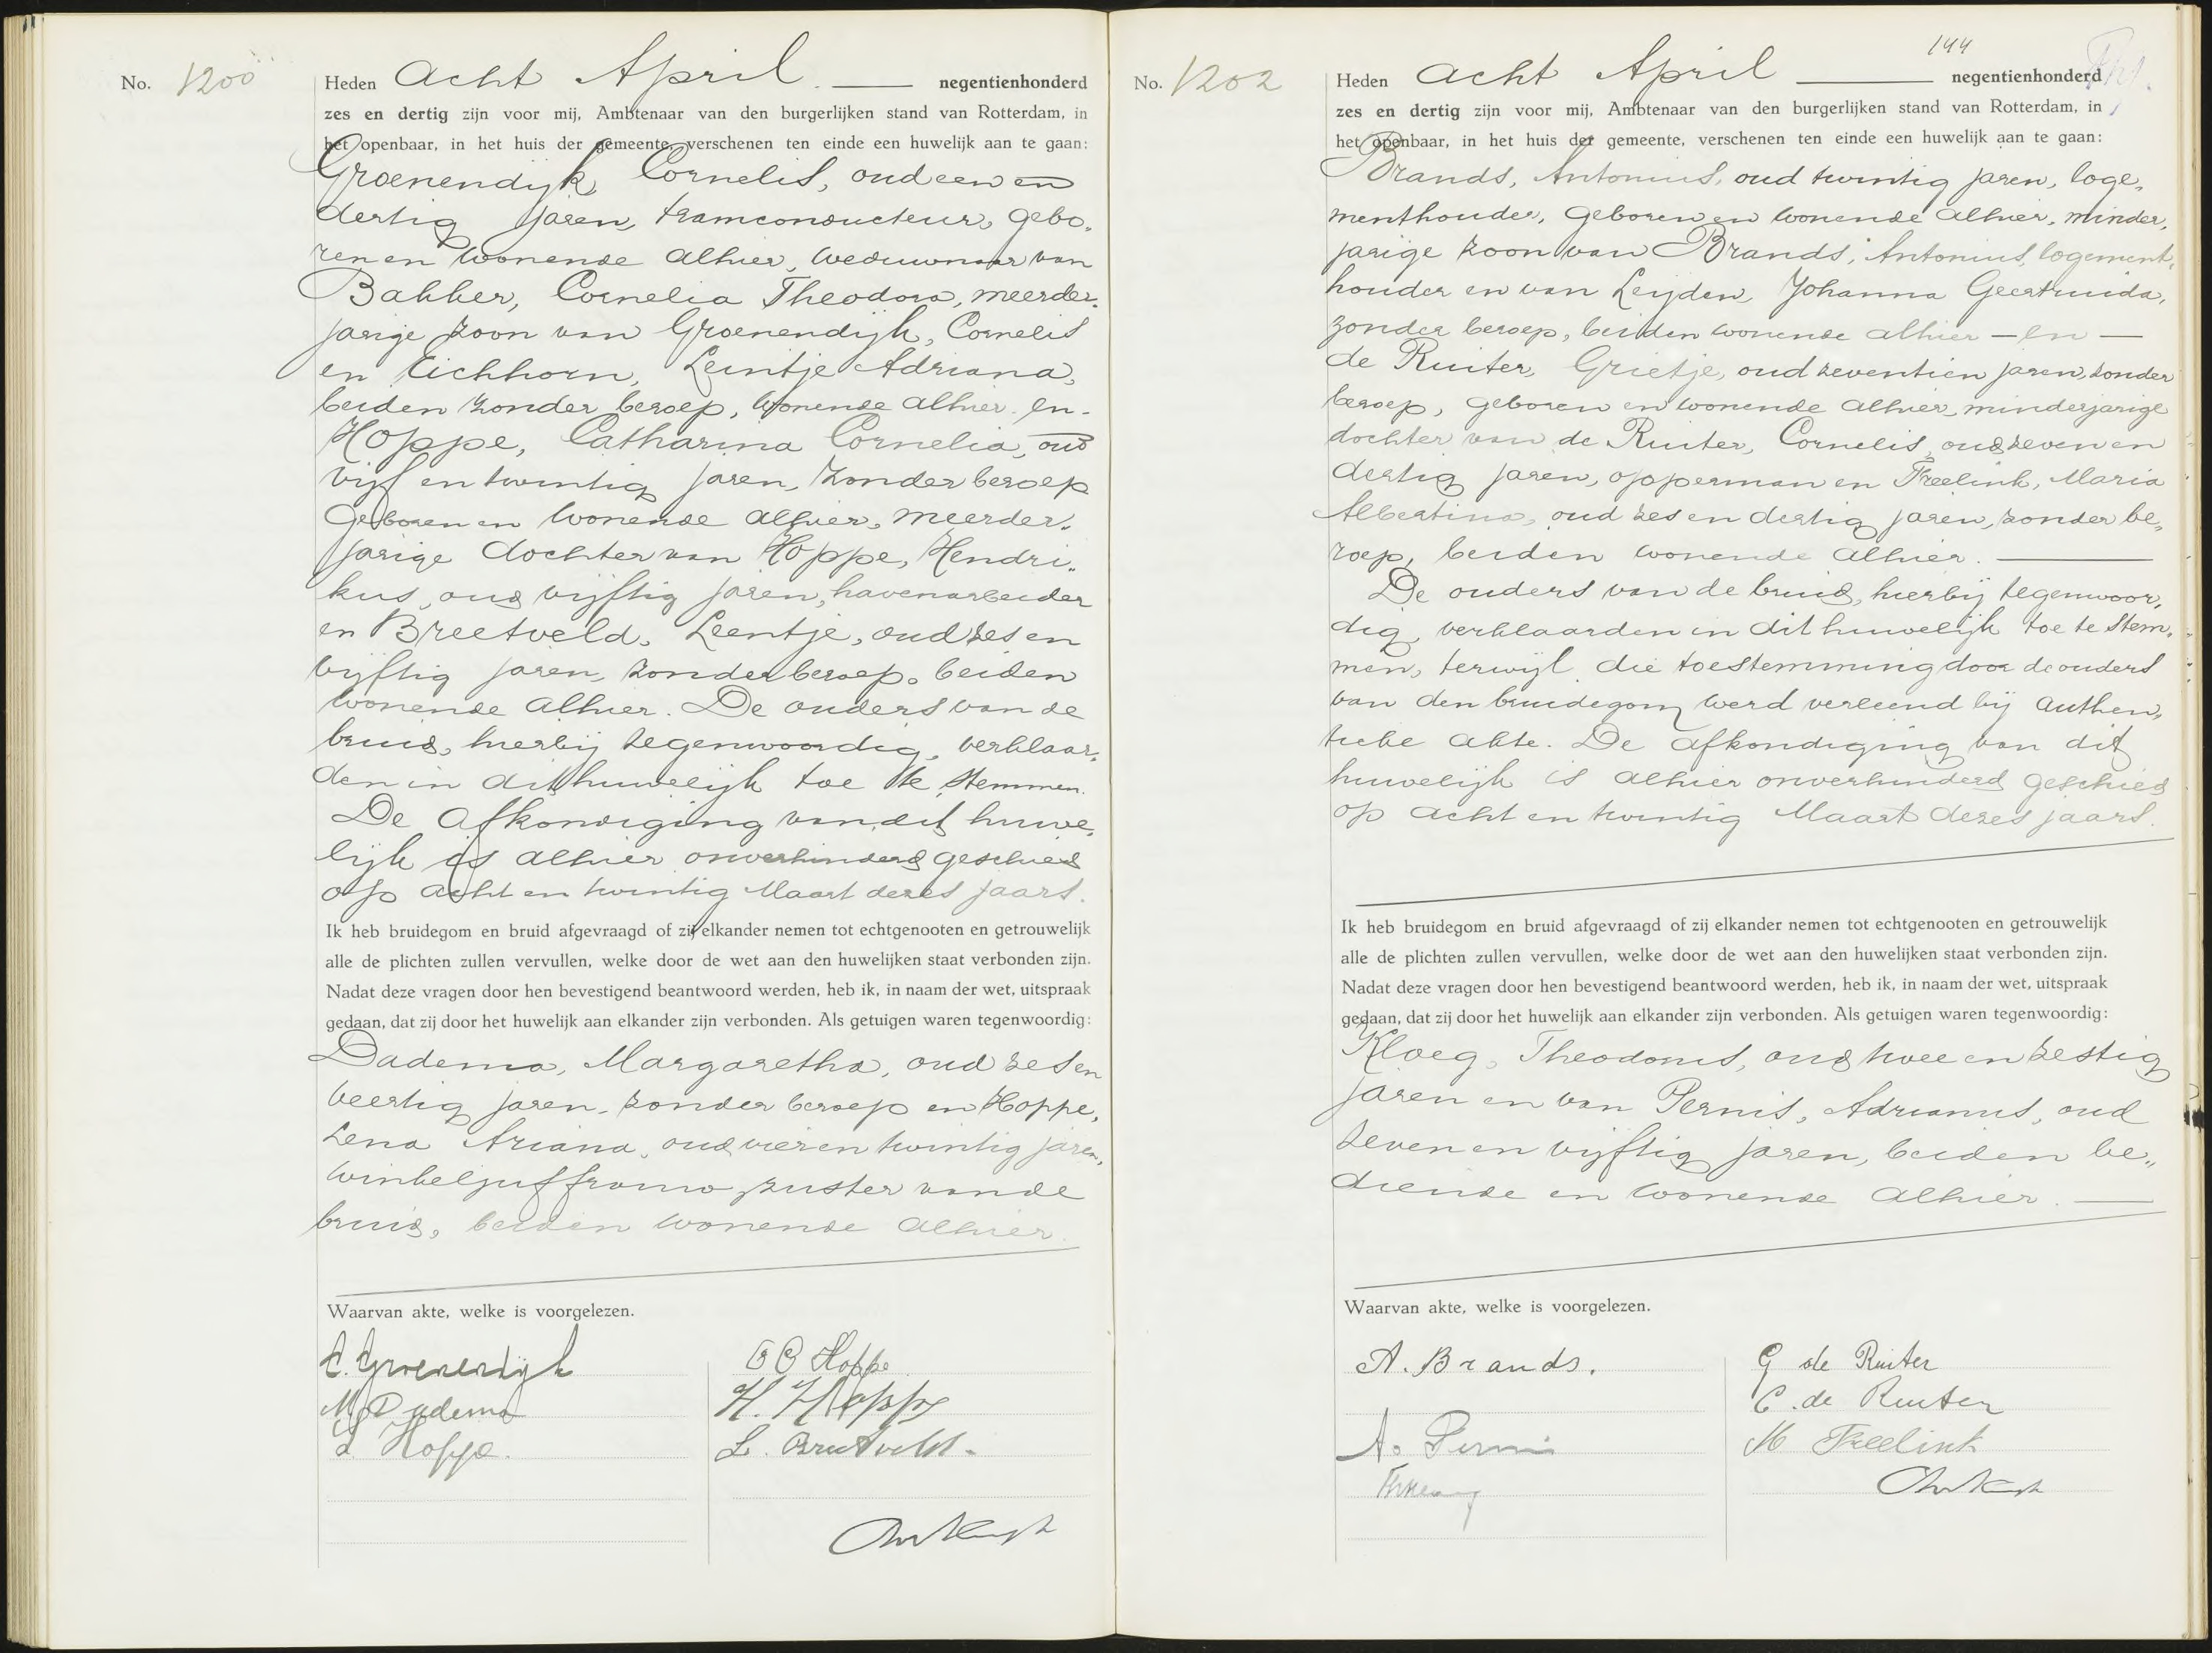 No. 1200
Heden acht April. — negentienhonderd
zes en dertig zijn voor mij, Ambtenaar van den burgerlijken stand van Rotterdam, in
het openbaar, in het huis der gemeente, verschenen ten einde een huwelijk aan te gaan:
Groenendijk, Cornelis, oud een en
dertig jaren, tramconducteur, gebo„
ren en wonende alhier, weduwnaar van
Bakker, Cornelia Theodora, meerder„
jarige zoon van Groenendijk, Cornelis
en Eichhorn, Leintje Adriana,
beiden zonder beroep, wonende alhier. en -
Hoppe, Catharina Cornelia, oud
vijf en twintig jaren, zonder beroep
geboren en wonende alhier, meerder„
jarige dochter van Hoppe, Hendri„
kus, oud vijftig jaren, havenarbeider
en Breetveld, Leentje, oud zes en
vijftig jaren, zonder beroep, beiden
wonende alhier. De ouders van de
bruid, hierbij tegenwoordig, verklaar„
den in dit huwelijk toe te stemmen.
De afkondiging van dit huwe„
lijk is alhier onverhinderd geschied
op acht en twintig Maart dezes jaars.
Ik heb bruidegom en bruid afgevraagd of zij elkander nemen tot echtgenooten en getrouwelijk
alle de plichten zullen vervullen, welke door de wet aan den huwelijken staat verbonden zijn.
Nadat deze vragen door hen bevestigend beantwoord werden, heb ik, in naam der wet, uitspraak
gedaan, dat zij door het huwelijk aan elkander zijn verbonden. Als getuigen waren tegenwoordig:
Dadema, Margaretha, oud zes en
veertig jaren, zonder beroep en Hoppe,
Lena Ariana, oud vier en twintig jaren,
winkeljuffrouw, zuster van de
bruid, beiden wonende alhier.
Waarvan akte, welke is voorgelezen.
C. Groenendijk
C C Hoppe
M. Dadema
H. Hoppe
L. Hoppe.
L. Breetveld.
No. 1202
144
Heden acht April — negentienhonderd
zes en dertig zijn voor mij, Ambtenaar van den burgerlijken stand van Rotterdam, in
het openbaar, in het huis der gemeente, verschenen ten einde een huwelijk aan te gaan:
Brands, Antonius, oud twintig jaren, loge„
menthouder, geboren en wonende alhier, minder„
jarige zoon van Brands, Antonius, logement„
houder en van Leijden, Johanna Geertruida,
zonder beroep, beiden wonende alhier — en —
de Ruiter, Grietje, oud zeventien jaren, zonder
beroep, geboren en wonende alhier, minderjarige
dochter van de Ruiter, Cornelis, oud zeven en
dertig jaren, opperman en Freelink, Maria
Albertina, oud zes en dertig jaren, zonder be„
roep, beiden wonende alhier. —
De ouders van de bruid, hierbij tegenwoor„
dig, verklaarden in dit huwelijk toe te stem„
men, terwijl die toestemming door de ouders
van den bruidegom werd verleend bij authen„
tieke akte. De afkondiging van dit
huwelijk is alhier onverhinderd geschied
op acht en twintig Maart dezes jaars.
Ik heb bruidegom en bruid afgevraagd of zij elkander nemen tot echtgenooten en getrouwelijk
alle de plichten zullen vervullen, welke door de wet aan den huwelijken staat verbonden zijn.
Nadat deze vragen door hen bevestigend beantwoord werden, heb ik, in naam der wet, uitspraak
gedaan, dat zij door het huwelijk aan elkander zijn verbonden. Als getuigen waren tegenwoordig:
Kloeg, Theodorus, oud twee en zestig
jaren en van Pernis, Adrianus, oud
zeven en vijftig jaren, beiden be„
diende en wonende alhier. —
Waarvan akte, welke is voorgelezen.
A. Brands.
G de Ruiter
C. de Ruiter
A. Pernis
M Freelink